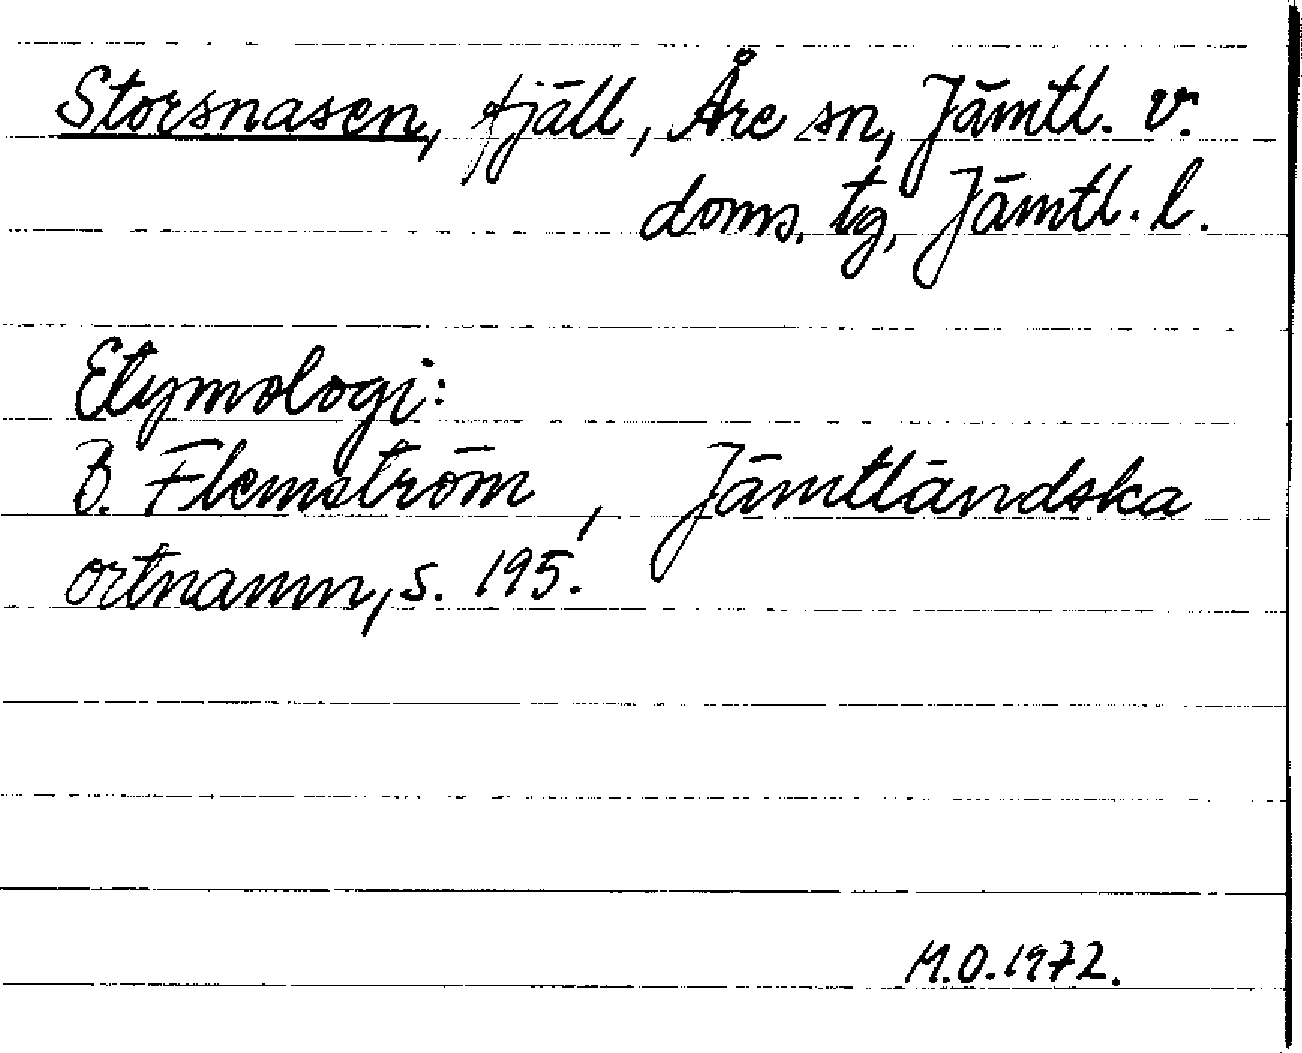 Storsnasen, fjäll, Åre sn, Jämtl. v.
doms. tg, Jämtl. l.
Etymologi:
B. Flemström, Jämtländska
ortnamn, s. 195.
M.O. 1972.